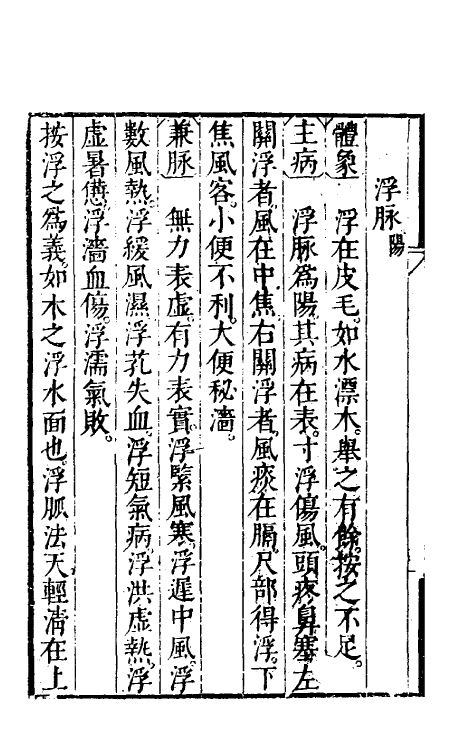 浮脉陽
體象　浮在皮毛如水漂木舉之有餘按之不足
主病　浮脉爲陽其病在表寸浮傷風頭疼鼻塞左
關浮者風在中焦右關浮者風痰在膈尺部得浮下
焦風客小便不利大便秘濇
兼脉　無力表虛有力表實浮緊風寒浮遲中風浮
數風熱浮緩風濕浮芤失血浮短氣病浮洪虛熱浮
虛暑憊浮濇血傷浮濡氣敗
按浮之爲義如木之浮水面也浮脈法天輕清在上